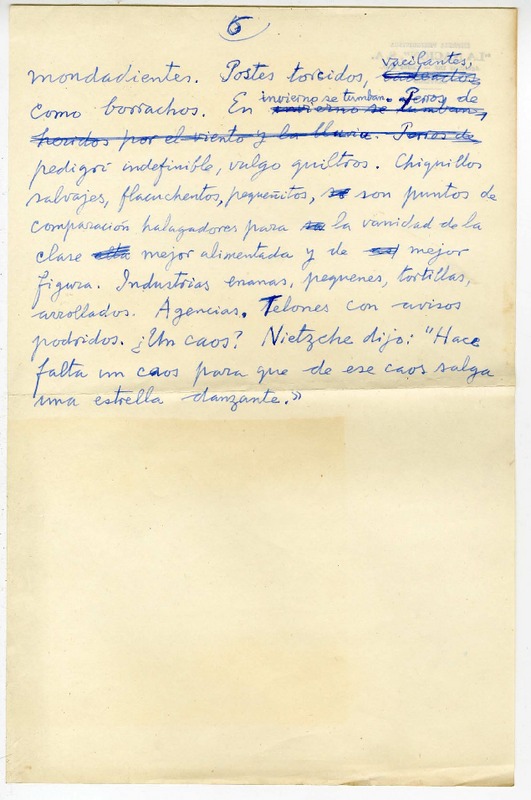 5
mondadientes. Postes torcidos, vacilantes,
como borrachos. En invierno se tumban. Perros de
heridos por el viento y la lluvia. Perros de
pedigrí indefinible, vulgo quiltros. Chiquillos
salvajes, flacuchentos, pequeñitos, son puntos de
comparación halagadores para la vanidad de la
clase alta mejor alimentada y de mejor
figura. Industrias enanas, pequenes, tortillas,
arrollados. Agencias. Telones con avisos
podridos. ¿Un caos? Nietzche dijo: "Hace
falta un caos para que de ese caos salga
una estrella danzante."